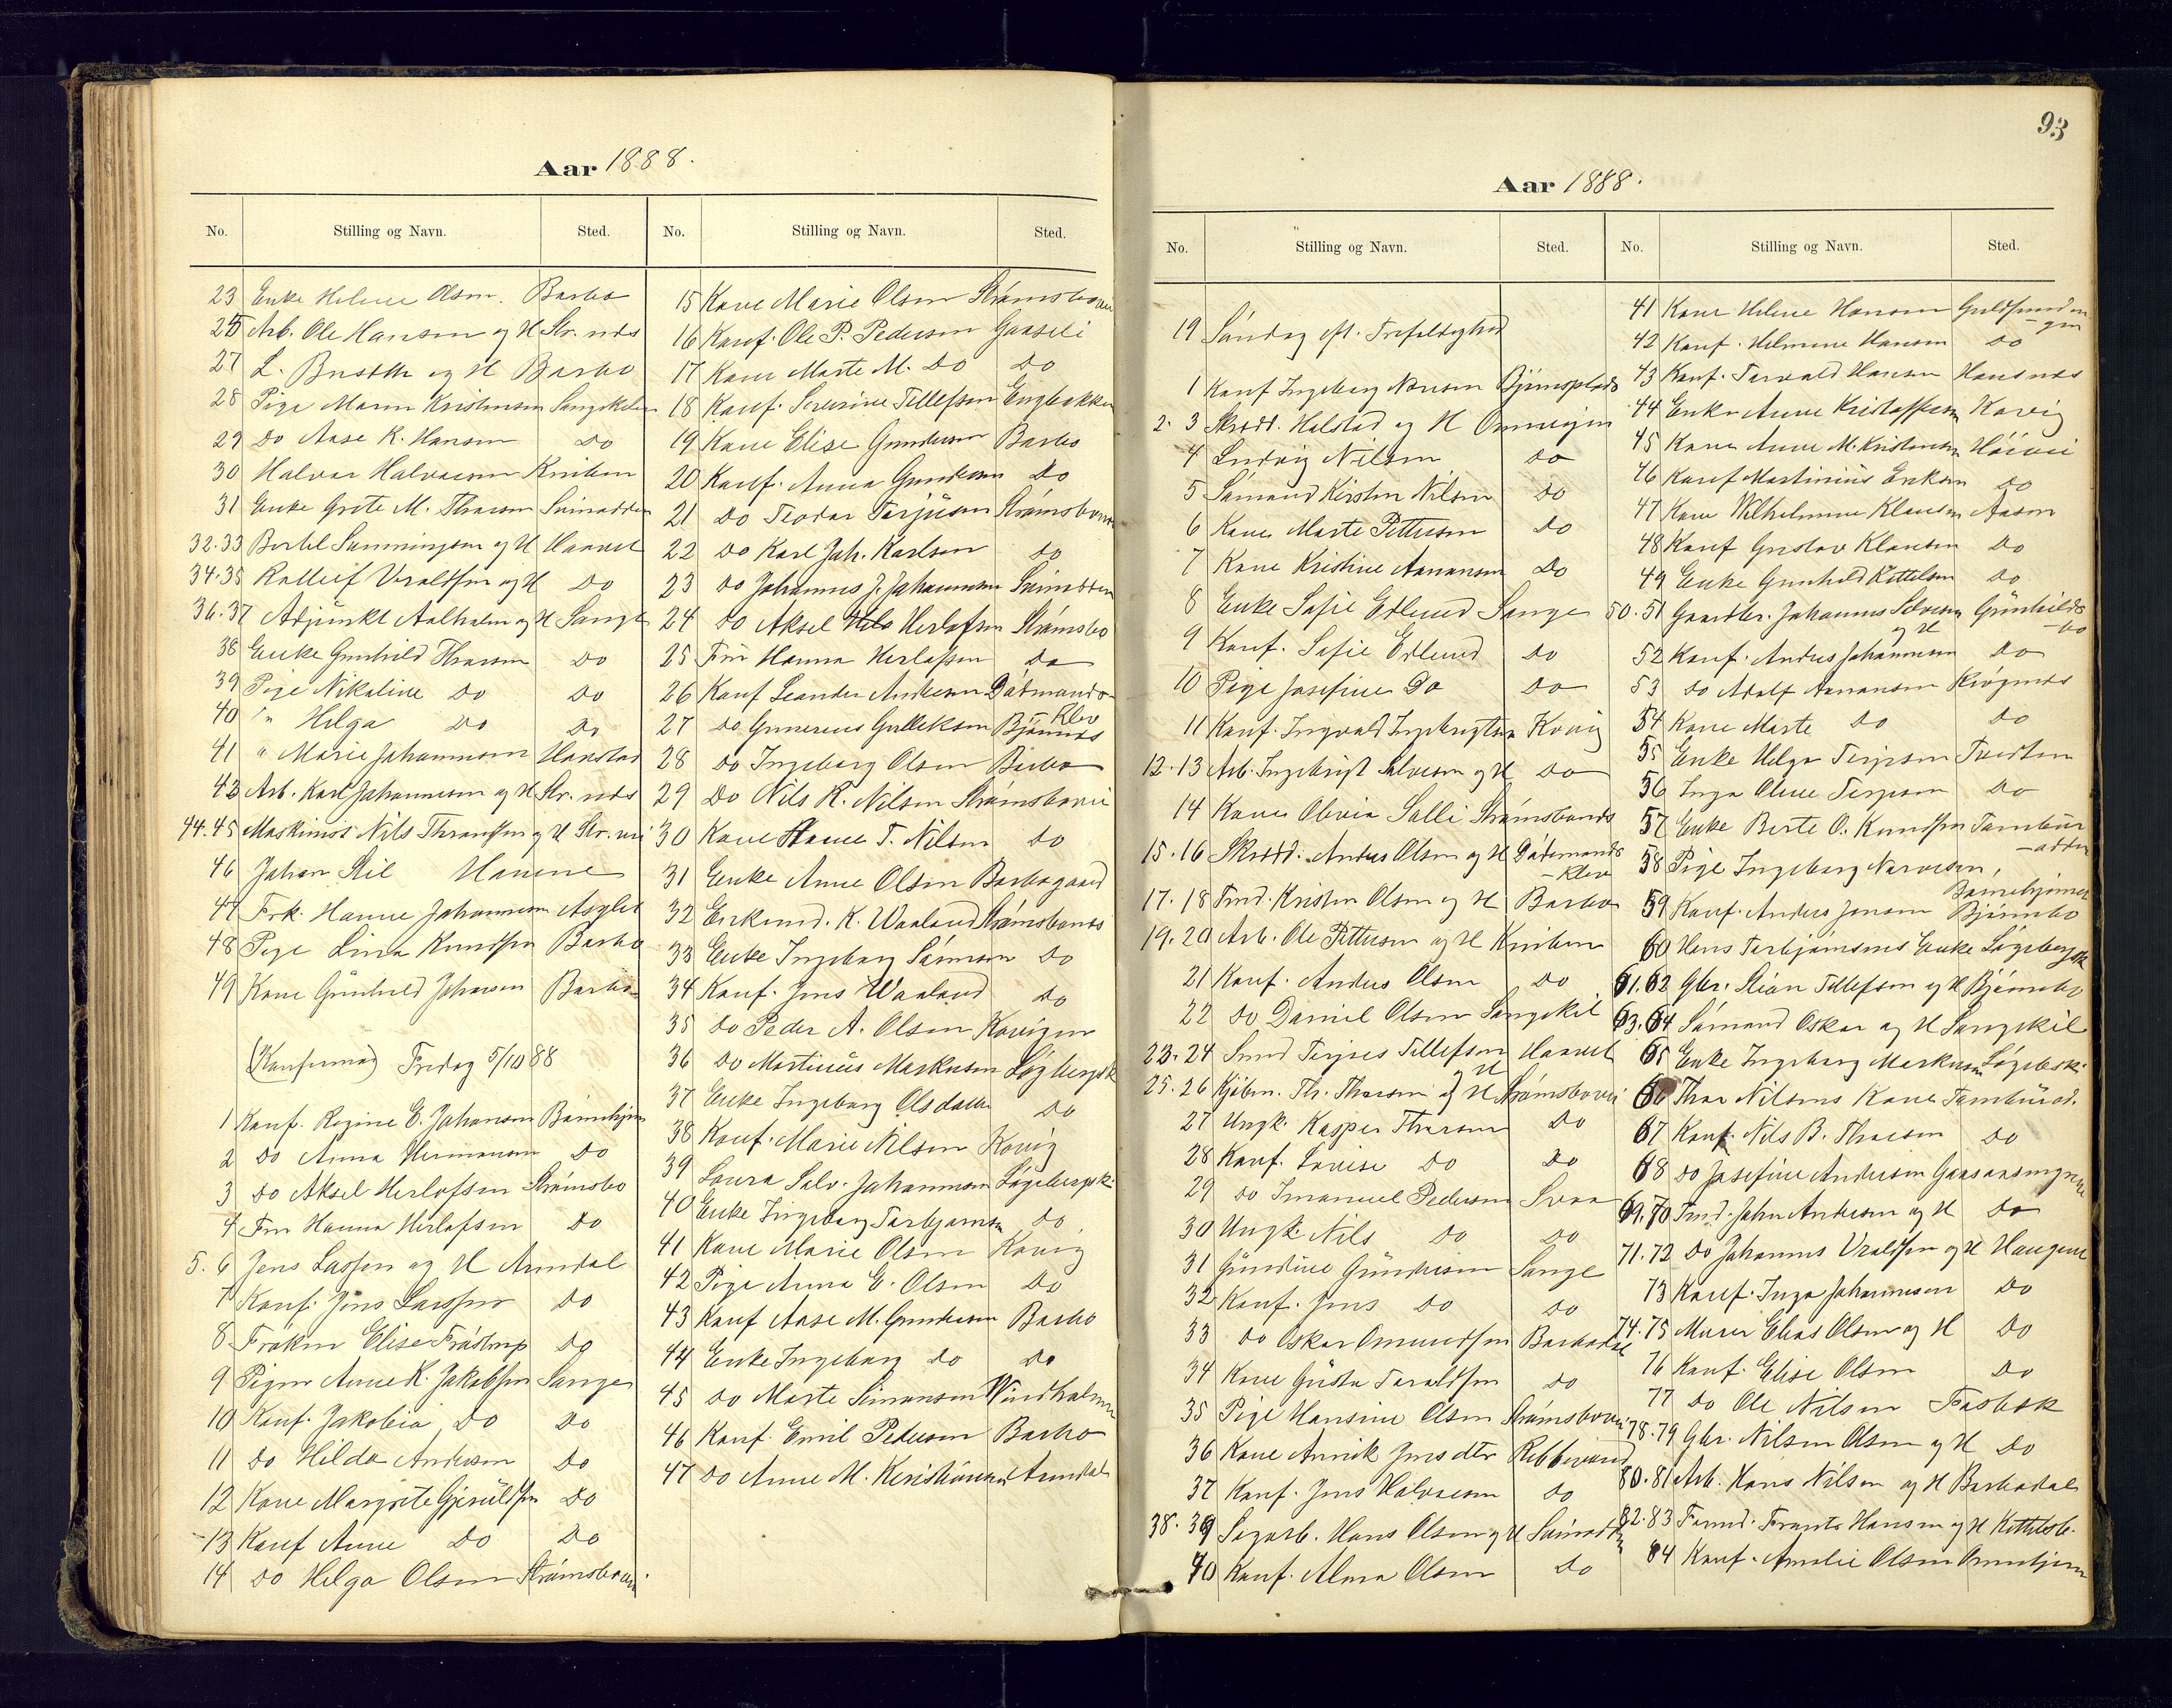 Aar 1888.
No. Stilling og Navn. Sted. No. Stilling og Navn. Sted.
23 Enke Helene Olsen. Barbo
25 Arb. Ole Hansen og H Str. nds
27 L. og H Barbo
28 Pige Maren Kristensen Langskilen
29 Do Aase K. Hansen Do
30 Halvor Halvorsen Kniben
31 Enke Grete M. Thorsen
32.33 Bertel og H Haavet
34.35 Rolleif Vraldsen og H Do
36.37 Adjunkt Aalholm og H Lange
38 Enke Gunhild Thorsen Do
39 Pige Nikoline Do Do
40 " Helga Do Do
41 " Marie Johannesen Hanstad
43 Arb. Karl Johannesen og H Str. nds
44.45 Maskinist Nils Thoralfsen og H Str. vei
46 Johan Stil Havene
47 Frk. Hanne Johannesen Asylet
48 Pige Lina Knudsen Barbo
49 Kone Gunhild Johnsen Barbo
(Konfirmas) Fredag 5/10 88
1 Konf. Regine E. Johansen
2 Do Anna Hermansen Do
3 Do Aksel Herlofsen Strömsbo
4 Frü Hanna Herlofsen Do
5.6 Jens Lassen og H Arendal
7 Konf. Jens Lassen Do
8 Frøken Elise Frøstrup Do
9 Pigen Anne K. Jakobsen Lange
10 Konf. Jakobia Do Do
11 Do Hilda Andersen Do
12 Kone Margrete Gjeruldsen Do
13 Konf Anne Do Do
14 Do Helga Olsen Strömsbovei
15 Kone Marie Olsen Strömsbovei
16 Konf. Ole P. Pedersen Gaaseli
17 Kone Marte M. Do Do
18 Konf. Severine Tellefsen Engbakken
19 Kone Elise Gundersen Barbo
20 Konf. Anna Gundersen Do
21 Do Teodor Terjüsen Strömsboveien
22 Do Karl Joh. Karlsen Do
23 Do Johannes J. Johannesen
24 Do Aksel Herlofsen Strömsbo
25 Frü Hanna Herlofsen Do
26 Konf Leander Andersen Dödmands
- Klev
27 Do Gunerius Gulleksen Björnnes
28 Do Ingeborg Olsen Barbo
29 Do Nils R. Nilsen Strömsbovei
30 Kone T. Nilsen Do
31 Enke Anne Olsen Barbogaard
32 K. Waaland Strömsbonds
33 Enke Ingeborg Sörensen Do
34 Konf. Jens Waaland Do
35 Do Peder A. Olsen Kovigen
36 Do Martinus Markusen Lögebergsk
37 Enke Ingeborg Olsdatter Do
38 Konf. Marie Nilsen Kovig
39 Laura Salv. Johannesen Lögebergsk.
40 Enke Ingeborg Torbjørnsen Do
41 Kone Marie Olsen Kovig
42 Pige Anna E. Olsen Do
43 Konf Aase M. Gundersen Barbo
44 Enke Ingeborg Do Do
45 Do Marte Simonsen Vindholmen
46 Konf. Emil Pedersen Barbo
47 Do Anne M. Kristiansen Arendal
93
Aar 1888.
No. Stilling og Navn. Sted. No. Stilling og Navn. Sted.
19 Söndag eft. Trefoldighed
1 Konf Ingeborg Björnsplads
2.3 Skrædd. Halstad og H
4 Ludvig Nilsen Do
5 Sömand Kirsten Nilsen Do
6 Kone Marte Pettersen Do
7 Kone Kristine Aanonsen Do
8 Enke Sofie Edlund Lange
9 Konf. Sofie Edlund Do
10 Pige Josefine Do Do
11 Konf. Ingvald Ingebrigtsen Kovig
12.13 Arb. Ingebrigt Salvesen og H Do
14 Kone Olivia Salli Strömsbonds
15.16 Skrædd. Anders Olsen og H Dödsmands
- Klev
17.18 Tmd. Kristen Olsen og H Barbo
19.20 Arb. Ole Pettersen og H Kniben
21 Konf. Anders Olsen Do
22 Do Daniel Olsen Langskil
23.24 Smed Terjes Tellefsen og H Haavet
25.26 Kjöbm. Th. Thorsen og H Strömsbovei
27 Ungk. Kasper Thorsen Do
28 Konf. Lovise Do Do
29 Do Imanuel Pedersen Svaa
30 Ungk. Nils Do Do
31 Gündine Gündersen Lange
32 Konf. Jens Do Do
33 Do Oskar Omundsen Barbodal
34 Kone Güsta Taraldsen Do
35 Pige Hansine Olsen Strömsbovei
36 Kone Annik Jensdtr
37 Konf. Jens Halvorsen Do
38.39 Sagarb. Hans Olsen og H
40 Konf. Alma Olsen Do
41 Kone Helene Hansen
42 Konf. Helmine Hansen Do
43 Konf. Torvald Hansen Hansnes
44 Enke Anne Kristoffersen Kovig
45 Kone Anne M. Kristensen
46 Konf Martinius Eriksen Do
47 Kone Wilhelmine Klausen Aasen
48 Konf Gustav Klausen Do
49 Enke Gunhild Kettelsen Do
50.51 Gaardbr. Johannes Salvesen og H Günhilds
- bo
52 Konf. Anders Johannesen Do
53 Do Adolf Aanonsen
54 Kone Marte Do Do
55 Enke Helga Terjesen Tvedten
56 Inga Oline Terjesen Do
57 Enke Berte O. Knudsen Tambur
- odden
58 Pige Ingeborg
59 Konf. Anders Jensen Björnebo
60 Hens Torbjörnsens Enke Lögebergsk
61.62 Gbr. Stian Tellefsen og H Björnebo
63.64 Sömand Oskar og H Langskil
65 Enke Ingeborg Markusen Lögebsk.
66 Thor Nilsens Kone Tambürod.
67 Konf. Nils B. Thorsen Do
68 Do Josefine Andersen
69.70 Tmd. John Andersen og H Do
71.72 Do Johannes Vraldsen og H Haugene
73 Konf. Inga Johannesen Do
74.75 Murer Elias Olsen og H Do
76 Konf. Elise Olsen Do
77 Do Ole Nilsen Fosbæk
78.79 Gbr. Nilsen Olsen og H Do
80.81 Arb. Hans Nilsen og H Barbodal
82.83 Frants Hansen og H Kittelsb.
84 Konf. Amalie Olsen